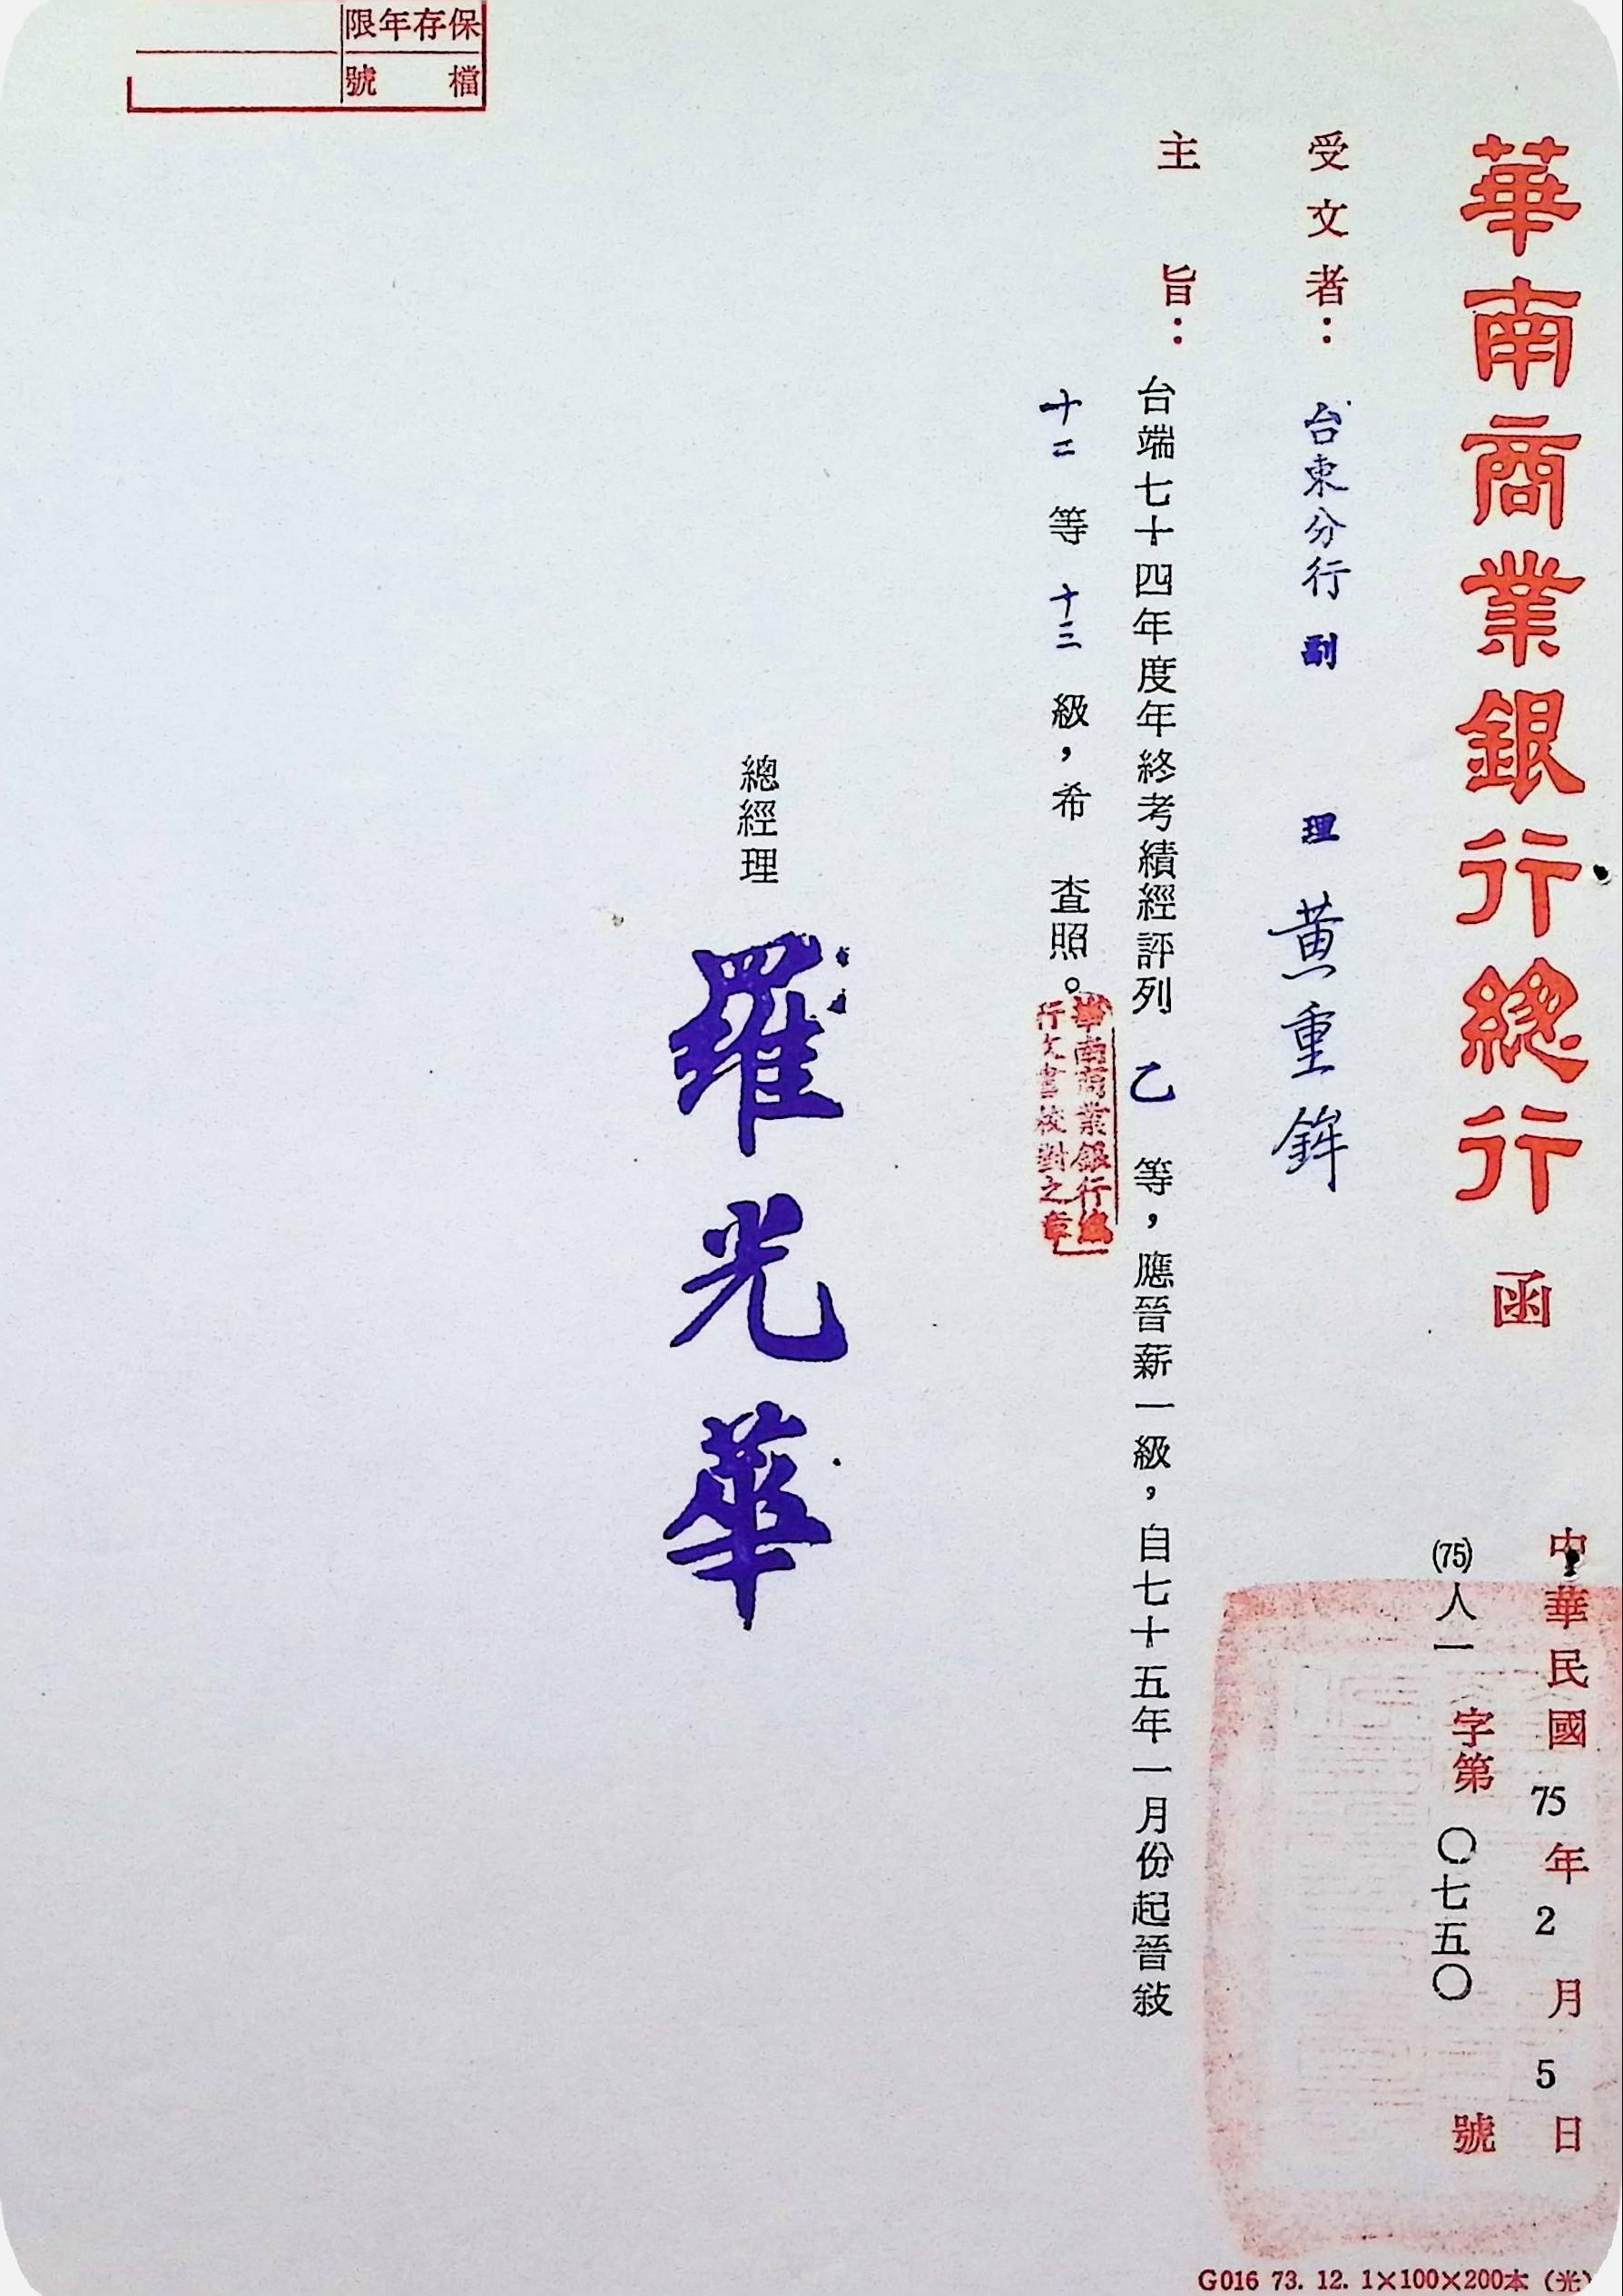 保存年限
檔號
華南商業銀行總行函
中華民國75年2月5日
(75)人一字第〇七五〇號
受文者：台東分行副理黃重鉾
主旨：台端七十四年度年終考績經評列乙等，應晉薪一級，自七十五年一月份起晉敍
十二等十三級，希查照。
華南商業銀行總
行文書校對之章
總經理羅光華
G016 73. 12. 1×100×200本（光）